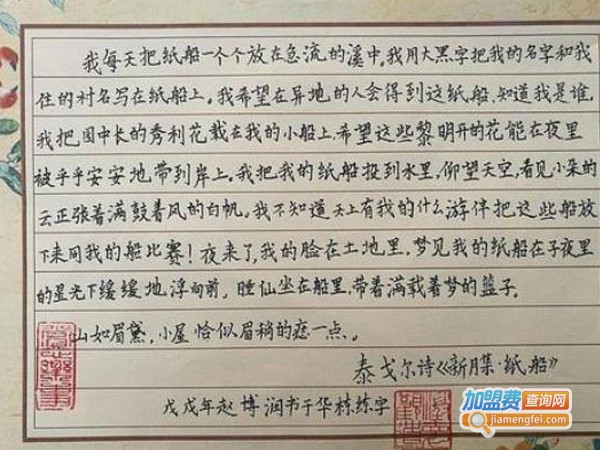 我每天把纸船一个个放在急流的溪中。我用大黑字把我的名字和我
住的村名写在纸船上。我希望在异地的人会得到这纸船，知道我是谁。
我把园中长的秀利花载在我的小船上，希望这些黎明开的花能在夜里
被平平安安地带到岸上。我把我的纸船投到水里，仰望天空，看见小朵的
云正张着满鼓着风的白帆。我不知道天上有我的什么游伴把这些船放
下来同我的船比赛！夜来了，我的脸在土地里，梦见我的纸船在子夜里
的星光下缓缓地浮向前。睡仙坐在船里，带着满载着梦的篮子。
山如眉黛，小屋恰似眉稍的痣一点。
泰戈尔诗《新月集·纸船》
戊戌年赵博润书于华栋练字
加盟费查询网
jiamengfei.com